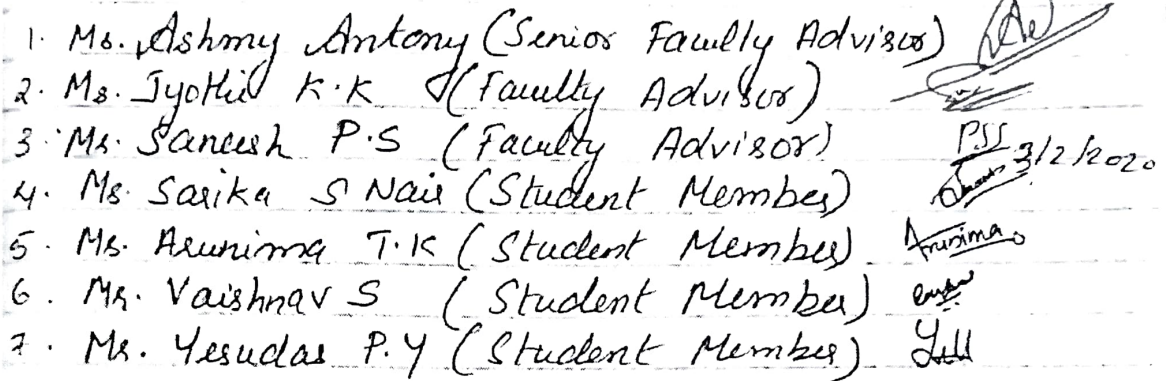 1. Ms. Ashmy Antony (Senior Faculty Advisor)
2. Ms. Jyothi K.K (Faculty Advisor)
3. Mr. Saneesh P.S (Faculty Advisor) PSS 3/2/2020
4. Ms. Sarika S Nair (Student Member)
5. Ms. Arunima T.K (Student Member) Arunima
6. Mr. Vaishnav S (Student Member)
7. Mr. Yesudas P.Y (Student Member)